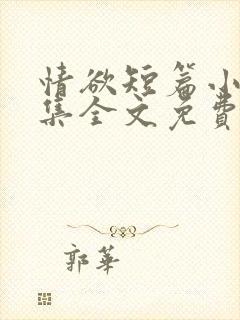 情欲短篇小
集全文免費
郭華